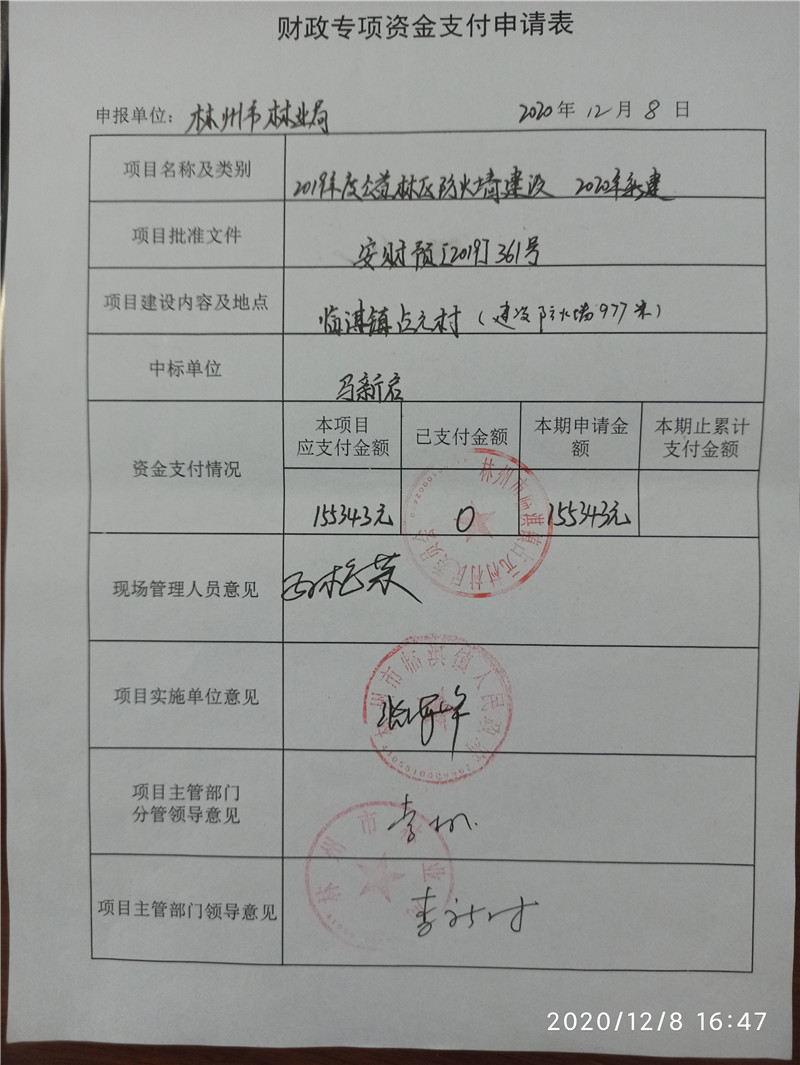 财政专项资金支付申请表
申报单位：林州市林业局 2020年12月8日
项目名称及类别 2019年度公益林区防火墙建设 2020年新建
项目批准文件 安财预[2019]361号
项目建设内容及地点 临淇镇占元村（建设防火墙977米）
中标单位 马新启
资金支付情况
本项目 应支付金额
已支付金额
本期申请金额
本期止累计 支付金额
155343元 0 155343元
林州市临淇镇占元村村民委员会
现场管理人员意见
项目实施单位意见
林州市临淇镇人民政府
项目主管部门
分管领导意见
林州市林业局
项目主管部门领导意见
2020/12/8 16:47